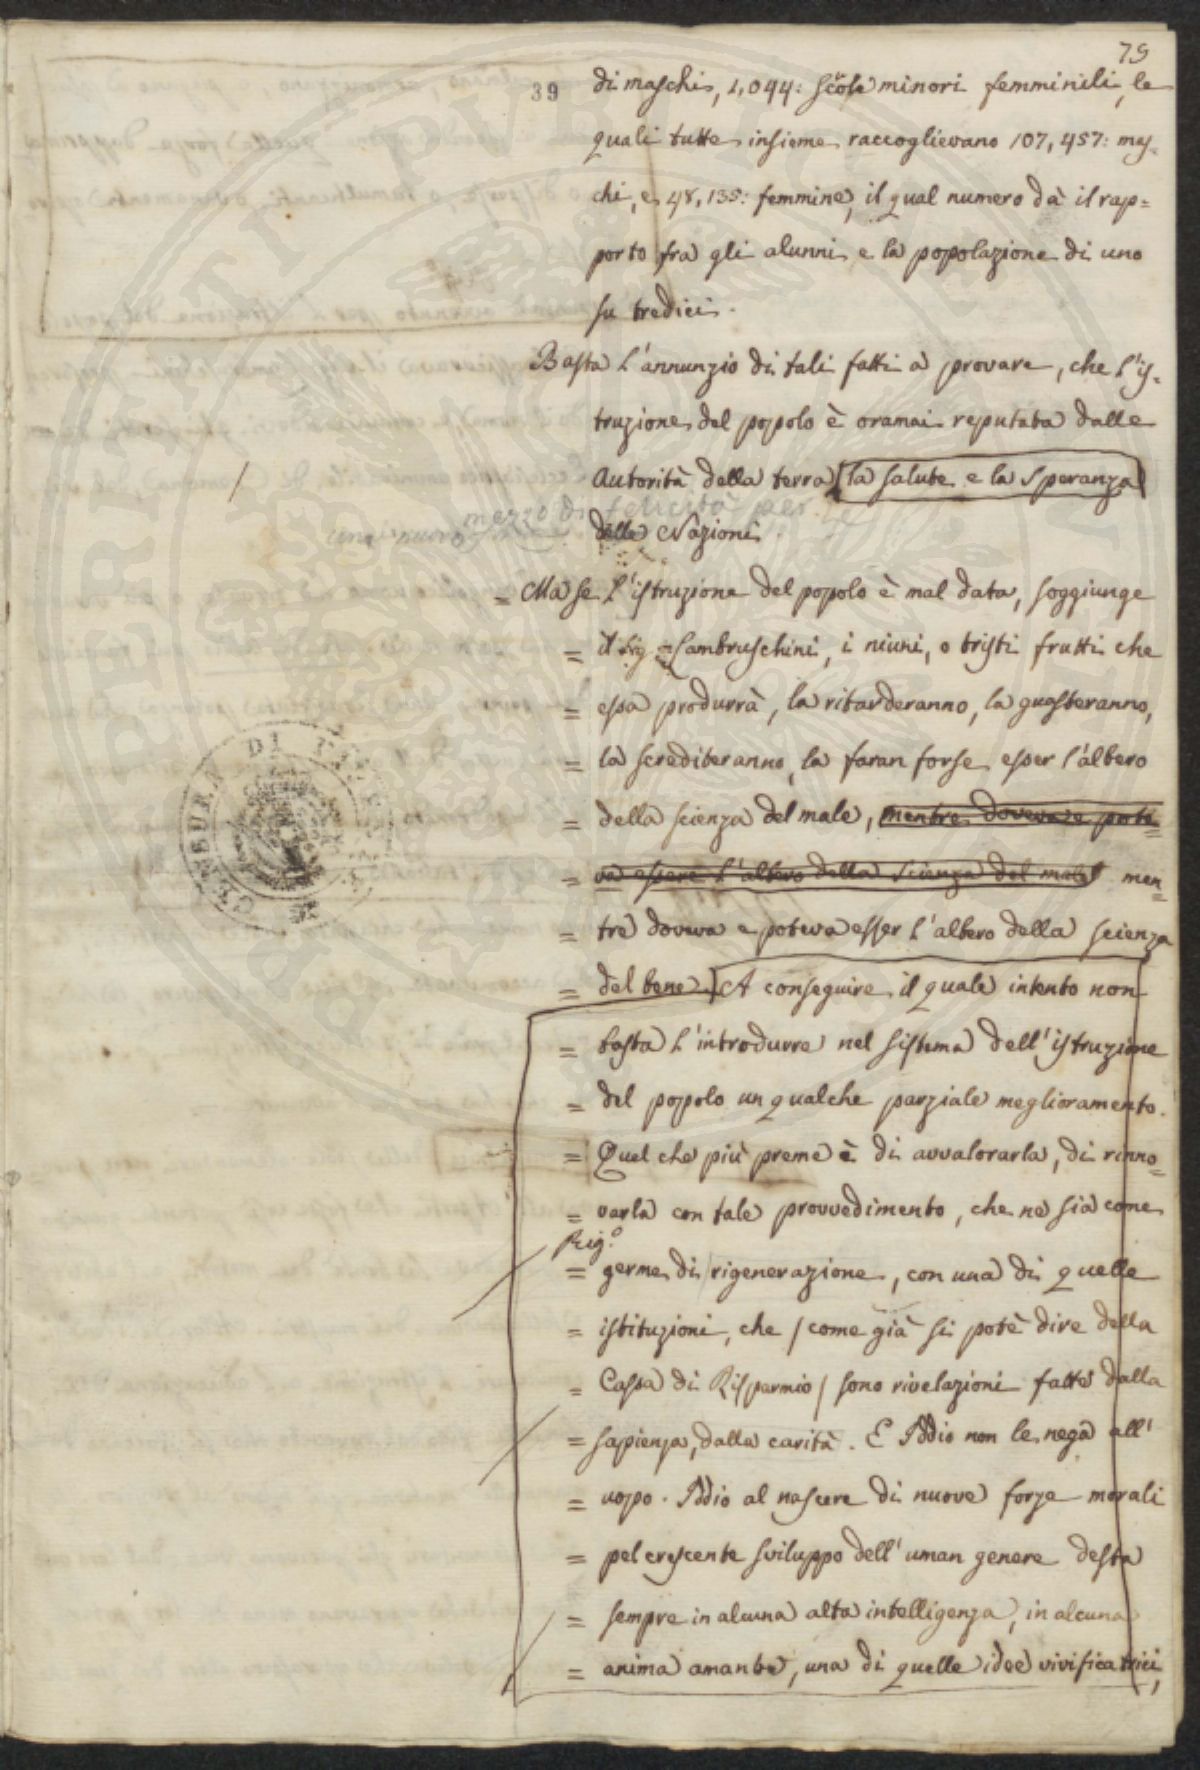 79
39
di maschi, 1,044: scole minori femminili, le
quali tutte insieme raccoglievano 107,457: mas-
chi, e 48,135: femmine, il qual numero dà il rap=
porto fra gli alunni e la popolazione di uno
su tredici.
Basta l'annunzio di tali fatti a provare, che l'is-
truzione del popolo è oramai reputata dalle
Autorità della terra la salute e la speranza
mezzo di felicità per
un nuovo
delle Nazioni.
= Ma se l'istruzione del popolo è mal data, soggiunge
= il Sig = Lambruschini, i niuni, o tristi frutti che
= essa produrrà, la ritarderanno, la guasteranno,
= la screditeranno, la faran forse esser l'albero
= della scienza del male, mentre doveva e pote=
= va essere l'albero della scienza del male men=
= tre doveva e poteva esser l'albero della scienza
= del bene. A conseguire il quale intento non
= basta l'introdurre nel sistema dell'istruzione
= del popolo un qualche parziale meglioramento.
= Quel che più preme è di avvalorarla, di rinno=
= varla con tale provvedimento, che ne sia come
Rig.º
= germe di rigenerazione, con una di quelle
= istituzioni, che / come già si potè dire della
= Cassa di Risparmio / sono rivelazioni fatte dalla
= sapienza, dalla carità. E Iddio non le nega all'
= uopo. Iddio al nascere di nuove forze morali
= pel crescente sviluppo dell'uman genere desta
= sempre in alcuna alta intelligenza, in alcuna
= anima amante, una di quelle idee vivificatrici,